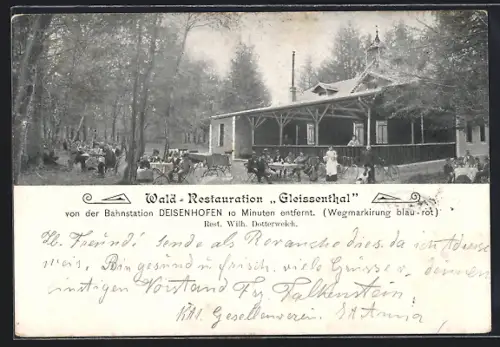 Wald - Restauration „Gleissenthal"
von der Bahnstation DEISENHOFEN 10 Minuten entfernt. (Wegmarkirung blau-rot)
Rest. Wilh. Dotterweich.
Lb. Freund! Sende als Revanche dies. da ich Adresse
weis. Bin gesund u frisch, viele Grüsse v. deinem
Vorstand Falkenstein,
Kth. Gesellenverein. St Anna